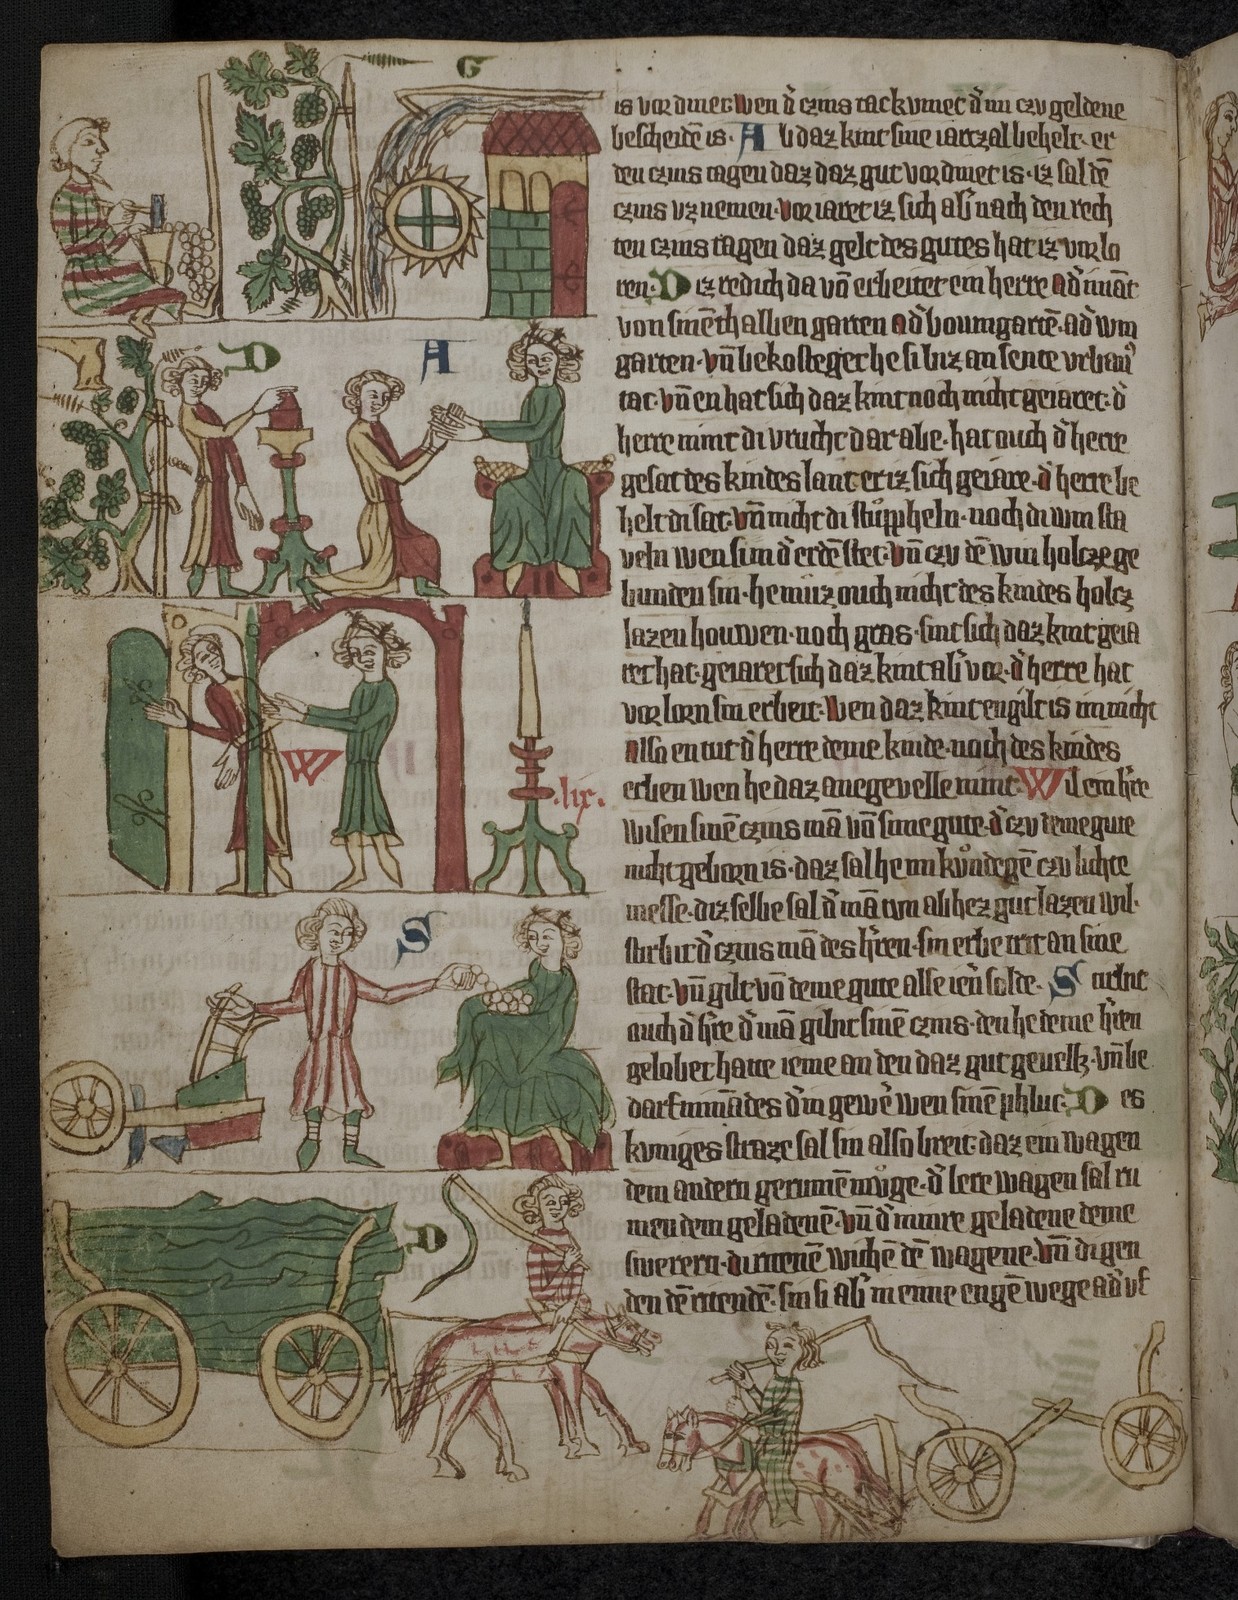 G
D
A
W
.lix.
S
D
is vor dinet wen d̄ czins tac kvmet d̄ im czv geldene
bescheidē is. A b daz kint sine iarczal behelt. er
den czins tagen daz daz gut vor dinet is. iz sal dē
czins vz nemen. vor iaret iz sich ab̄ nach den rech
ten czins tagen daz gelt des gutes hat iz vorlo
ren. D iz redich da vō erbeitet ein herre ad̄ nuāt
von sinē thalben garten ad̄ boumgartē. ad̄ win
garten. vn̄ bekosteget he si biz an sente vrbanꝰ
tac. vn̄ en hat sich daz kint noch nicht geiaret. d̄
herre nimt di vrucht dar abe. hat ouch d̄ herre
gesat des kindes lant er iz sich geiare. d̄ herre be
helt di sat. vn̄ nicht di stuppheln. noch di win sta
veln wen si in d̄ erdē stet. vn̄ czv dē win holcze ge
bunden sin. he muz ouch nicht des kindes holcz
lazen houwen. noch gras. sint sich daz kint geia
ret hat. geiaret sich daz kint ab̄ vor. d̄ herre hat
vor lorn sin erbeit. wen daz kint engilt is im nicht
also en tut d̄ herre deme kinde. noch des kindes
erben wen he daz anegevelle nimt. W il ein hr̄e
wisen sinē czins mā vō sime gute. d̄ czv deme gute
nicht geborn is. daz sal he im kundegē czv lichte
messe. diz selbe sal d̄ mā tvn ab hez gut lazen wil.
stirbit d̄ czins mā des hr̄en. sin erbe trit an sine
stat. vn̄ gilt vō deme gute alse ien̄ solde. S tirbit
ouch d̄ hr̄e d̄ mā gibit sinē czins. den he deme hr̄en
gelobet hatte ieme an den daz gut gevellt. vn̄ be
darf nimādes d̄ in gewē wen sinē phluc. D es
kvniges straze sal sin also breit. daz ein wagen
dem andern gerumē muge. d̄ lere wagen sal ru
men dem geladenē. vn̄ d̄ minre geladene deme
swerern. di ritenē wichē dē wagene. vn̄ di gen
den dē ritendē. sin si ab̄ in eime engē wege ad̄ vf